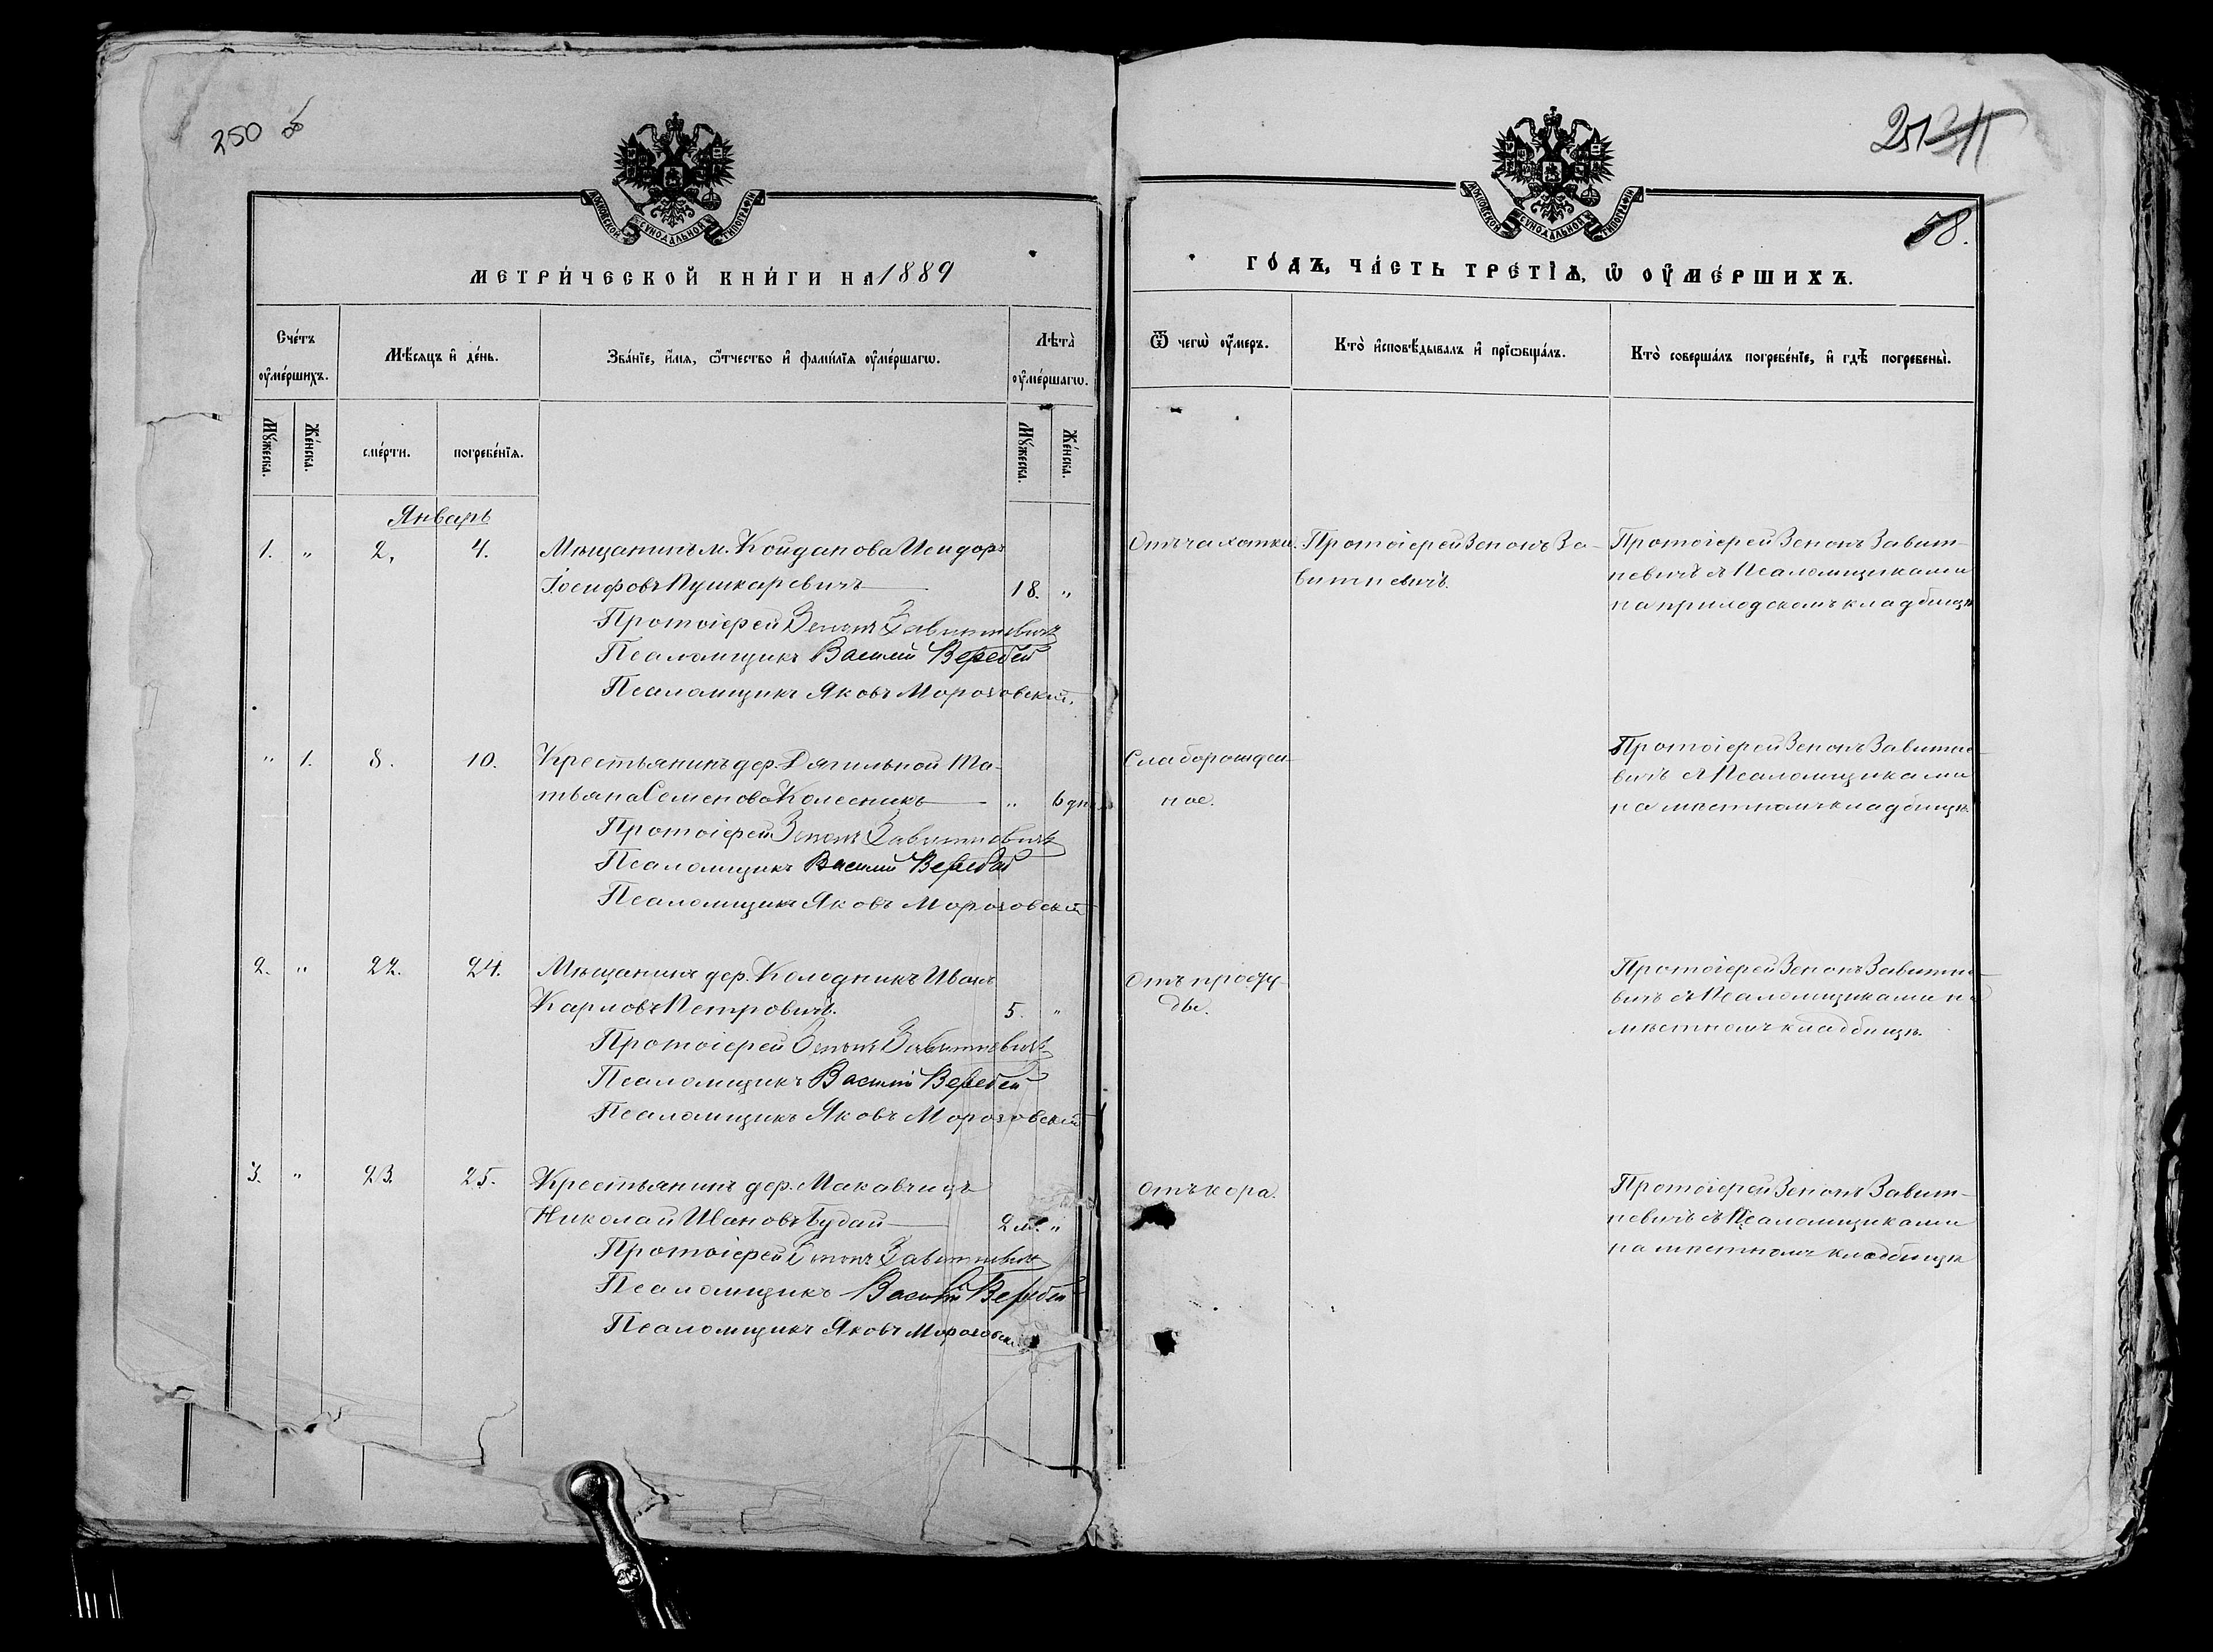 250 об
251
58.
МЕТРИ́ЧЕСКОЙ КНИ́ГИ НА 1889
ГО́ДЪ, ЧА́СТЬ ТРЕ́ТІѦ, Ѡ ОУ҆МЕ́РШИХЪ.
Сче́тъ оу҆ме́ршихъ.
Мѣ́сяцъ и҆ де́нь.
Зва́нїе, и҆́мя, ѻ҆́тчество и҆ фамı́лїя оу҆ме́ршагѡ.
Лѣта̀ оу҆ме́ршагѡ.
Ѿ чегѡ̀ оу҆́меръ.
Кто̀ и҆сповѣ́дывалъ и҆ прїѡбща́лъ.
Кто̀ соверша́лъ погребе́нїе, и҆ гдѣ̀ погребены̀.
Мꙋ́жеска.
Же́нска.
сме́рти.
погребе́нїѧ.
Мꙋ́жеска.
Же́нска.
Январь
1. " 2, 4. Мѣщанинъ м. Койданова Исидоръ
Іосифовъ Пушкаревичъ 18. "
Протоіерей Зенонъ Завитневичъ
Псаломщикъ Василій Веребей
Псаломщикъ Яковъ Морозовскій.
Отъ чахотки. Протоіерей Зенонъ За-
витневичъ.
Протоіерей Зенонъ Завит-
невичъ съ Псаломщиками
на приходскомъ кладбищѣ
" 1. 8. 10. Крестьянинъ дер. Дягильной Та-
тьяна Семенова Колесникъ " 6 дн.
Протоіерей Зенонъ Завитневичъ
Псаломщикъ Василій Веребей
Псаломщикъ Яковъ Морозовскій
Слаборожден-
ное.
Протоіерей Зенонъ Завитне-
вичъ съ Псаломщиками
на мѣстномъ кладбищѣ.
2. " 22. 24. Мѣщанинъ дер. Колодникъ Иванъ
Карловъ Петровичъ. 5. "
Протоіерей Зенонъ Завитневичъ
Псаломщикъ Василій Веребей
Псаломщикъ Яковъ Морозовскій
Отъ просту-
ды.
Протоіерей Зенонъ Завитне-
вичъ съ Псаломщиками на
мѣстномъ кладбищѣ.
3. " 23. 25. Крестьянинъ дер. Макавчицъ
Николай Ивановъ Будай 2 м. "
Протоіерей Зенонъ Завитневичъ
Псаломщикъ Василій Веребей
Псаломщикъ Яковъ Морозовскій
Отъ кора.
Протоіерей Зенонъ Завит-
невичъ съ Псаломщиками
на мѣстномъ кладбищѣ